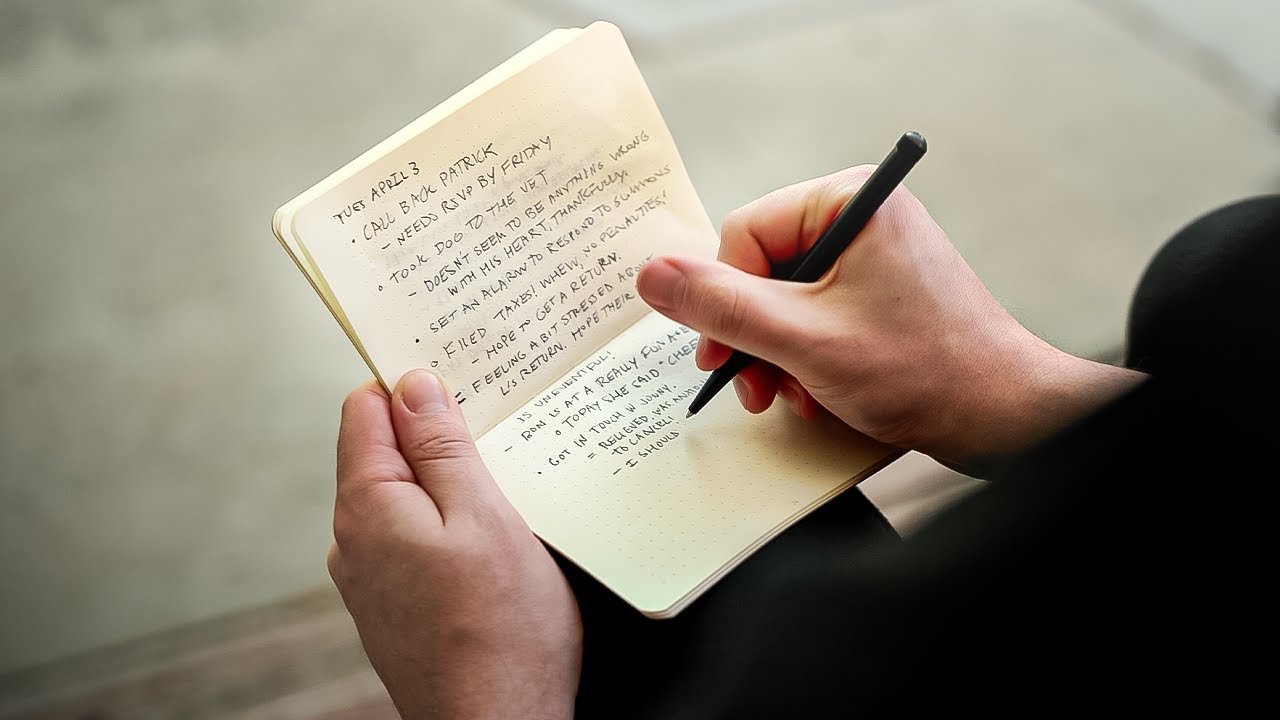 TUES APRIL 3
• CALL BACK PATRICK
– NEEDS RSVP BY FRIDAY
o TOOK DOG TO THE VET
– DOESN'T SEEM TO BE ANYTHING WRONG
WITH HIS HEART, THANKFULLY.
• SET AN ALARM TO RESPOND TO SUMMONS
o FILED TAXES! WHEW, NO PENALTIES!
– HOPE TO GET A RETURN.
= FEELING A BIT STRESSED ABOUT
L'S RETURN. HOPE THEIR
IS UNEVENTFUL!
– RON IS AT A REALLY FUN AGE
o TODAY SHE SAID "CHEE
• GOT IN TOUCH W
= RELIEVED,
TO CANCEL!
– I SHOULD